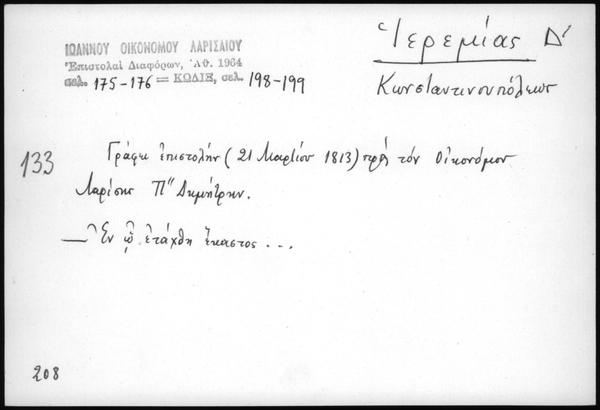 ΙΩΑΝΝΟΥ ΟΙΚΟΝΟΜΟΥ ΛΑΡΙΣΑΙΟΥ
Ἐπιστολαὶ Διαφόρων, Ἀθ. 1964
σελ. 175-176 = ΚΩΔΙΞ, σελ. 198-199
Ἱερεμίας Δ'
Κωνσταντινουπόλεως
133
Γράφει ἐπιστολὴν (21 Μαρτίου 1813) πρὸς τὸν Οἰκονόμον
Λαρίσης Π" Δημήτρην.
— Ἐν ᾧ ἐτάχθη ἕκαστος...
208